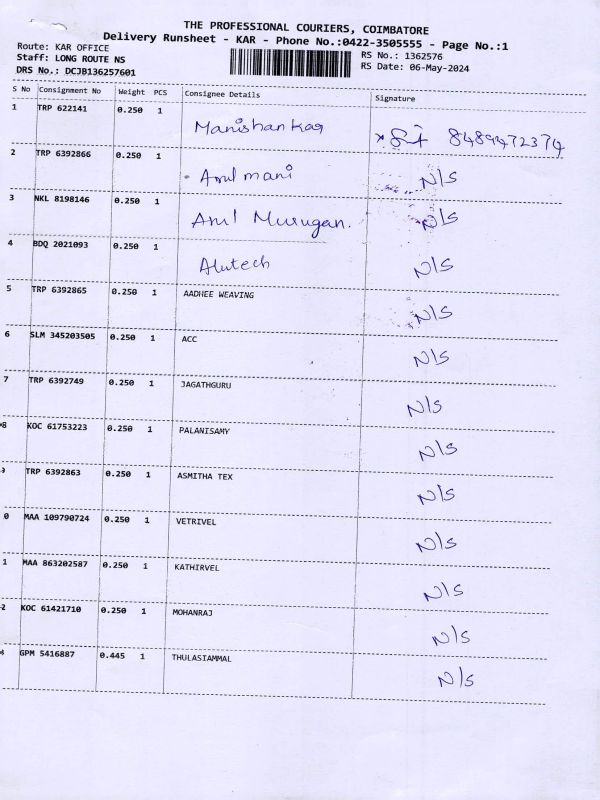 THE PROFESSIONAL COURIERS, COIMBATORE
Delivery Runsheet - KAR - Phone No.:0422-3505555 - Page No.:1
Route: KAR OFFICE RS No.: 1362576
Staff: LONG ROUTE NS RS Date: 06-May-2024
DRS No.: DCJB136257601
S No Consignment No Weight PCS Consignee Details Signature
1 TRP 622141 0.250 1 Manishankar 8489472374
2 TRP 6392866 0.250 1 Arulmani N/S
3 NKL 8198146 0.250 1 Arul Murugan. N/S
4 BDQ 2021093 0.250 1 Alutech N/S
5 TRP 6392865 0.250 1 AADHEE WEAVING N/S
6 SLM 345203505 0.250 1 ACC N/S
7 TRP 6392749 0.250 1 JAGATHGURU N/S
8 KOC 61753223 0.250 1 PALANISAMY N/S
TRP 6392863 0.250 1 ASMITHA TEX N/S
0 MAA 109790724 0.250 1 VETRIVEL N/S
1 MAA 863202587 0.250 1 KATHIRVEL N/S
2 KOC 61421710 0.250 1 MOHANRAJ N/S
GPM 5416887 0.445 1 THULASIAMMAL N/S